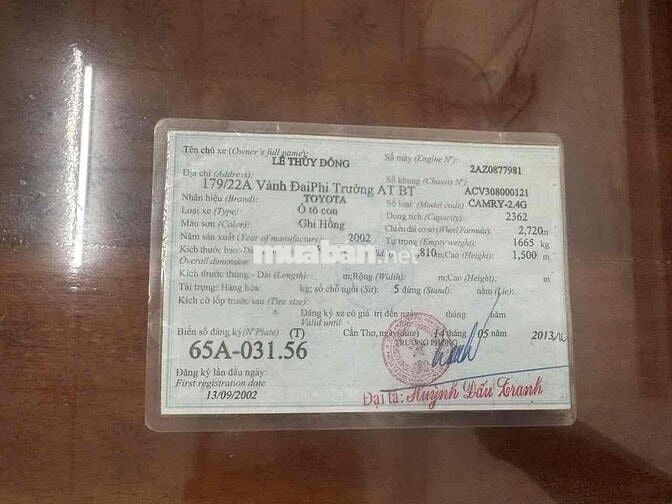 Tên chủ xe (Owner's full name):
LÊ THÙY ĐÔNG
Số máy (Engine Nº):
2AZ0877981
Địa chỉ (Address):
179/22A Vành ĐaiPhi Trường AT BT
Số khung (Chassis Nº):
ACV308000121
Nhãn hiệu (Brand): TOYOTA
Số loại (Model code) CAMRY-2.4G
Loại xe (Type): Ô tô con
Dung tích (Capacity): 2362
Màu sơn (Color): Ghi Hồng
Chiều dài cơ sở (Wheel Formula): 2,720m
Năm sản xuất (Year of manufacture): 2002
Tự trọng (Empty weight): 1665 kg
Kích thước bao
Overall dimension
810m;Cao (Height): 1,500 m
muaban.net
Kích thước thùng - Dài (Length): m;Rộng (Width): m;Cao (Height): m
Tải trọng: Hàng hóa: kg; số chỗ ngồi (Sit): 5 đứng (Stand): nằm (Lie):
Kích cỡ lốp trước/sau (Tire size):
Đăng ký xe có giá trị đến ngày tháng năm
Valid until
Biển số đăng ký(Nº Plate) (T)
65A-031.56
Cần Thơ, ngày(date) 14 tháng 05 năm 2013
TRƯỞNG PHÒNG
Đăng ký lần đầu ngày:
First registration date
13/09/2002
Đại tá: Huỳnh Đấu Tranh